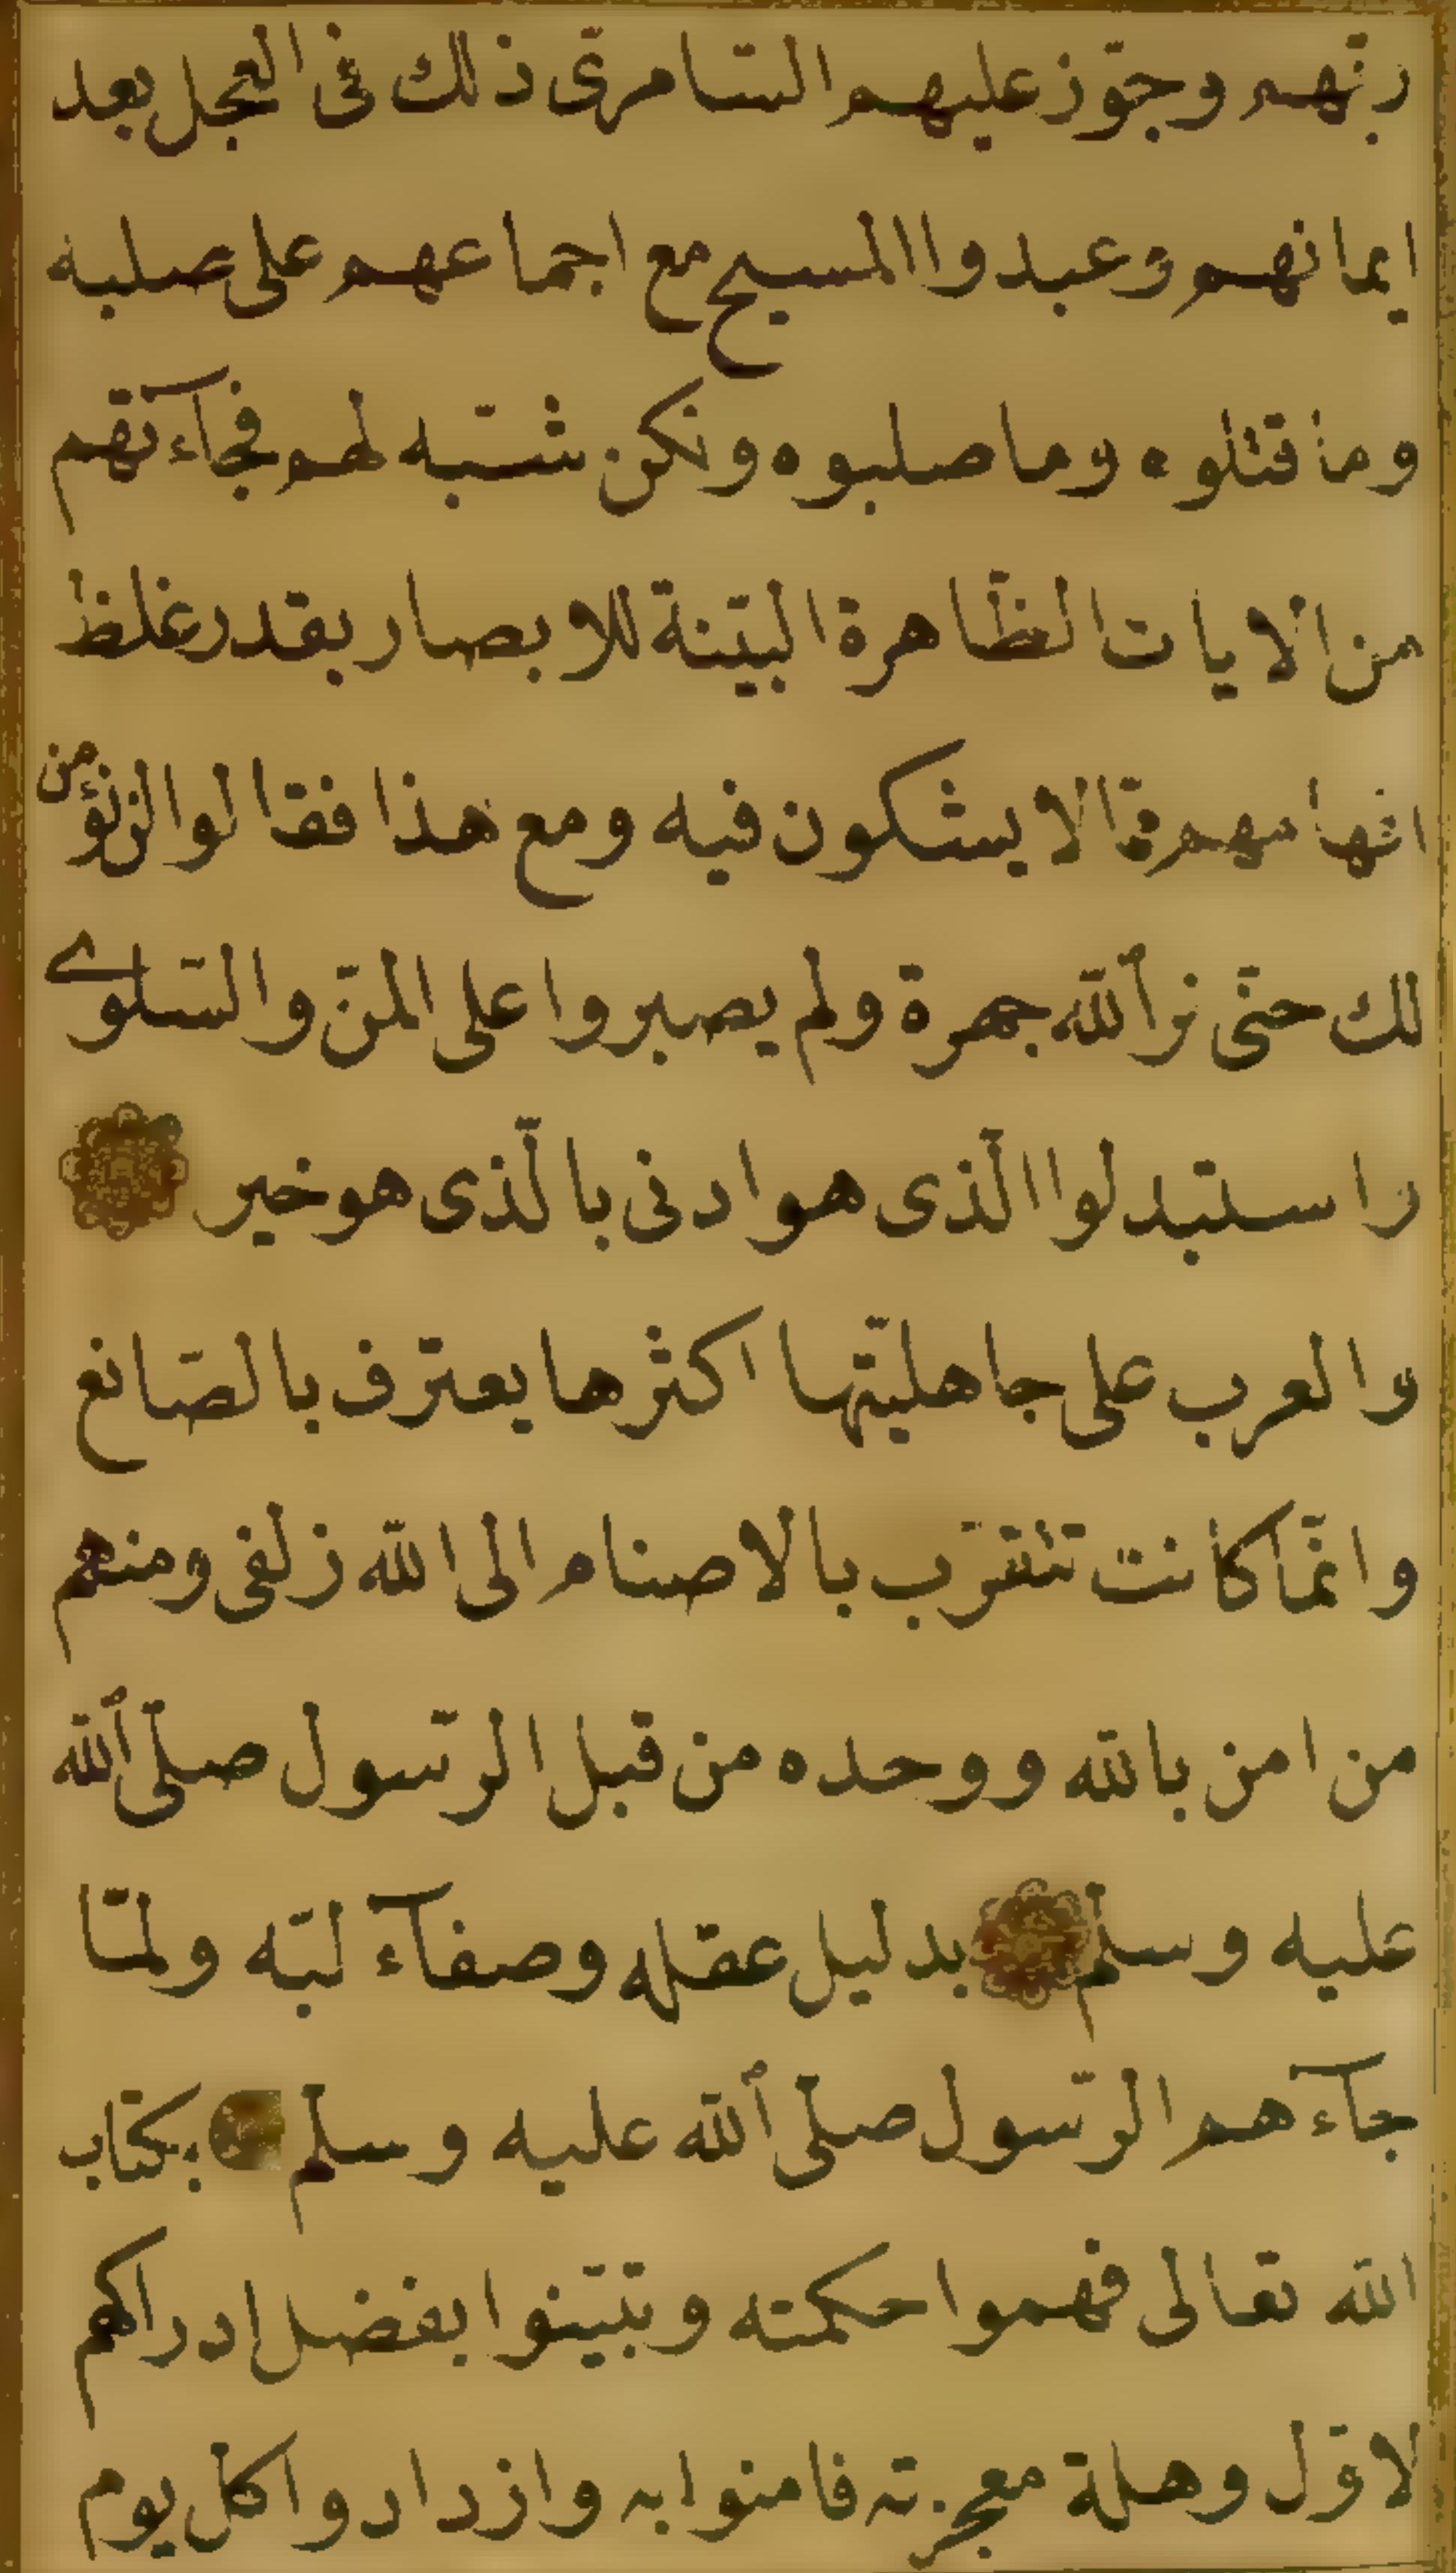 ربّهم وجوّز عليهم السّامرىّ ذلك فى العجل بعد
ايمانهم وعبدوا المسيح مع اجماعهم على صلبه
وما قتلوه وما صلبوه ولكن شبّه لهم فجآءتهم
من الايات الظّاهرة البيّنة للابصار بقدر غلظ
افهامهم مّا لا يشكون فيه ومع هذا فقالوا لن نؤمن
لك حتّى نر الله جهرة ولم يصبروا على المنّ والسّلوى
واستبدلوا الّذى هو ادنى بالّذى هو خير
والعرب على جاهليّتها اكثرها يعترف بالصّانع
وانمّا كانت تتقرّب بالاصنام الى الله زلفى ومنهم
من امن بالله ووحده من قبل الرّسول صلّى الله
عليه وسلم بدليل عقله وصفآء لبّه ولمّا
جآءهم الرّسول صلّى الله عليه وسلم بكتاب
الله تعالى فهموا حكمته وتبّينوا بفضل ادراكهم
لاوّل وهلة معجزته فامنوا به وازدادوا كل يوم